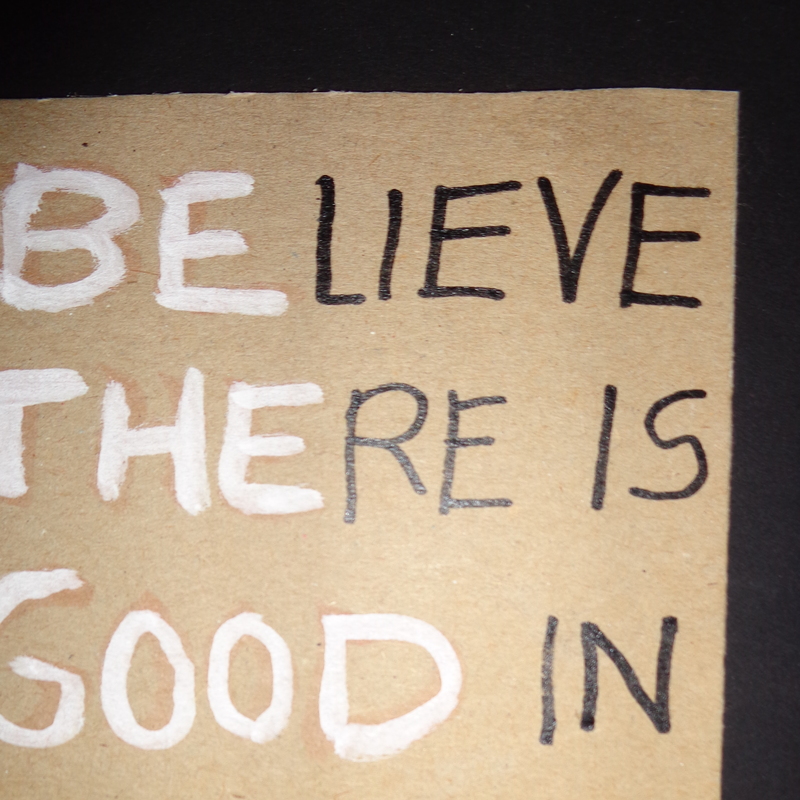 BELIEVE
THERE IS
GOOD IN